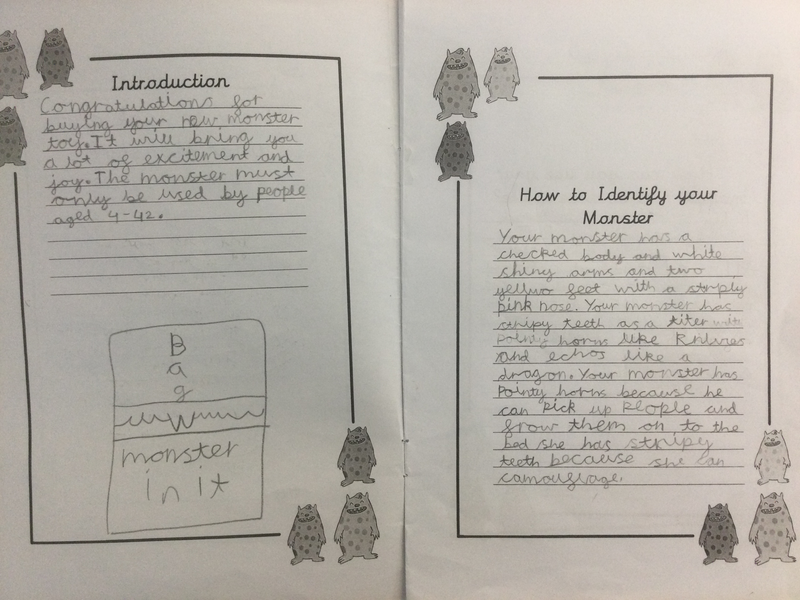 Introduction
Congratulations for
buying your new monster
toy. It will bring you
a lot of excitement and
joy. The monster must
only be used by people
aged 4-42.
B
a
g
monster
in it
How to Identify your
Monster
Your monster has a
checked body and white
shiny arms and two
yelluo feet with a striply
pink nose. Your monster has
stripy teeth as a titer with
pointy horns like Knlives
and echos like a
dragon. Your monster has
Pointy horns because he
can pick up people and
frow them on to the
bed she has stripy
teeth because she can
camouflage.